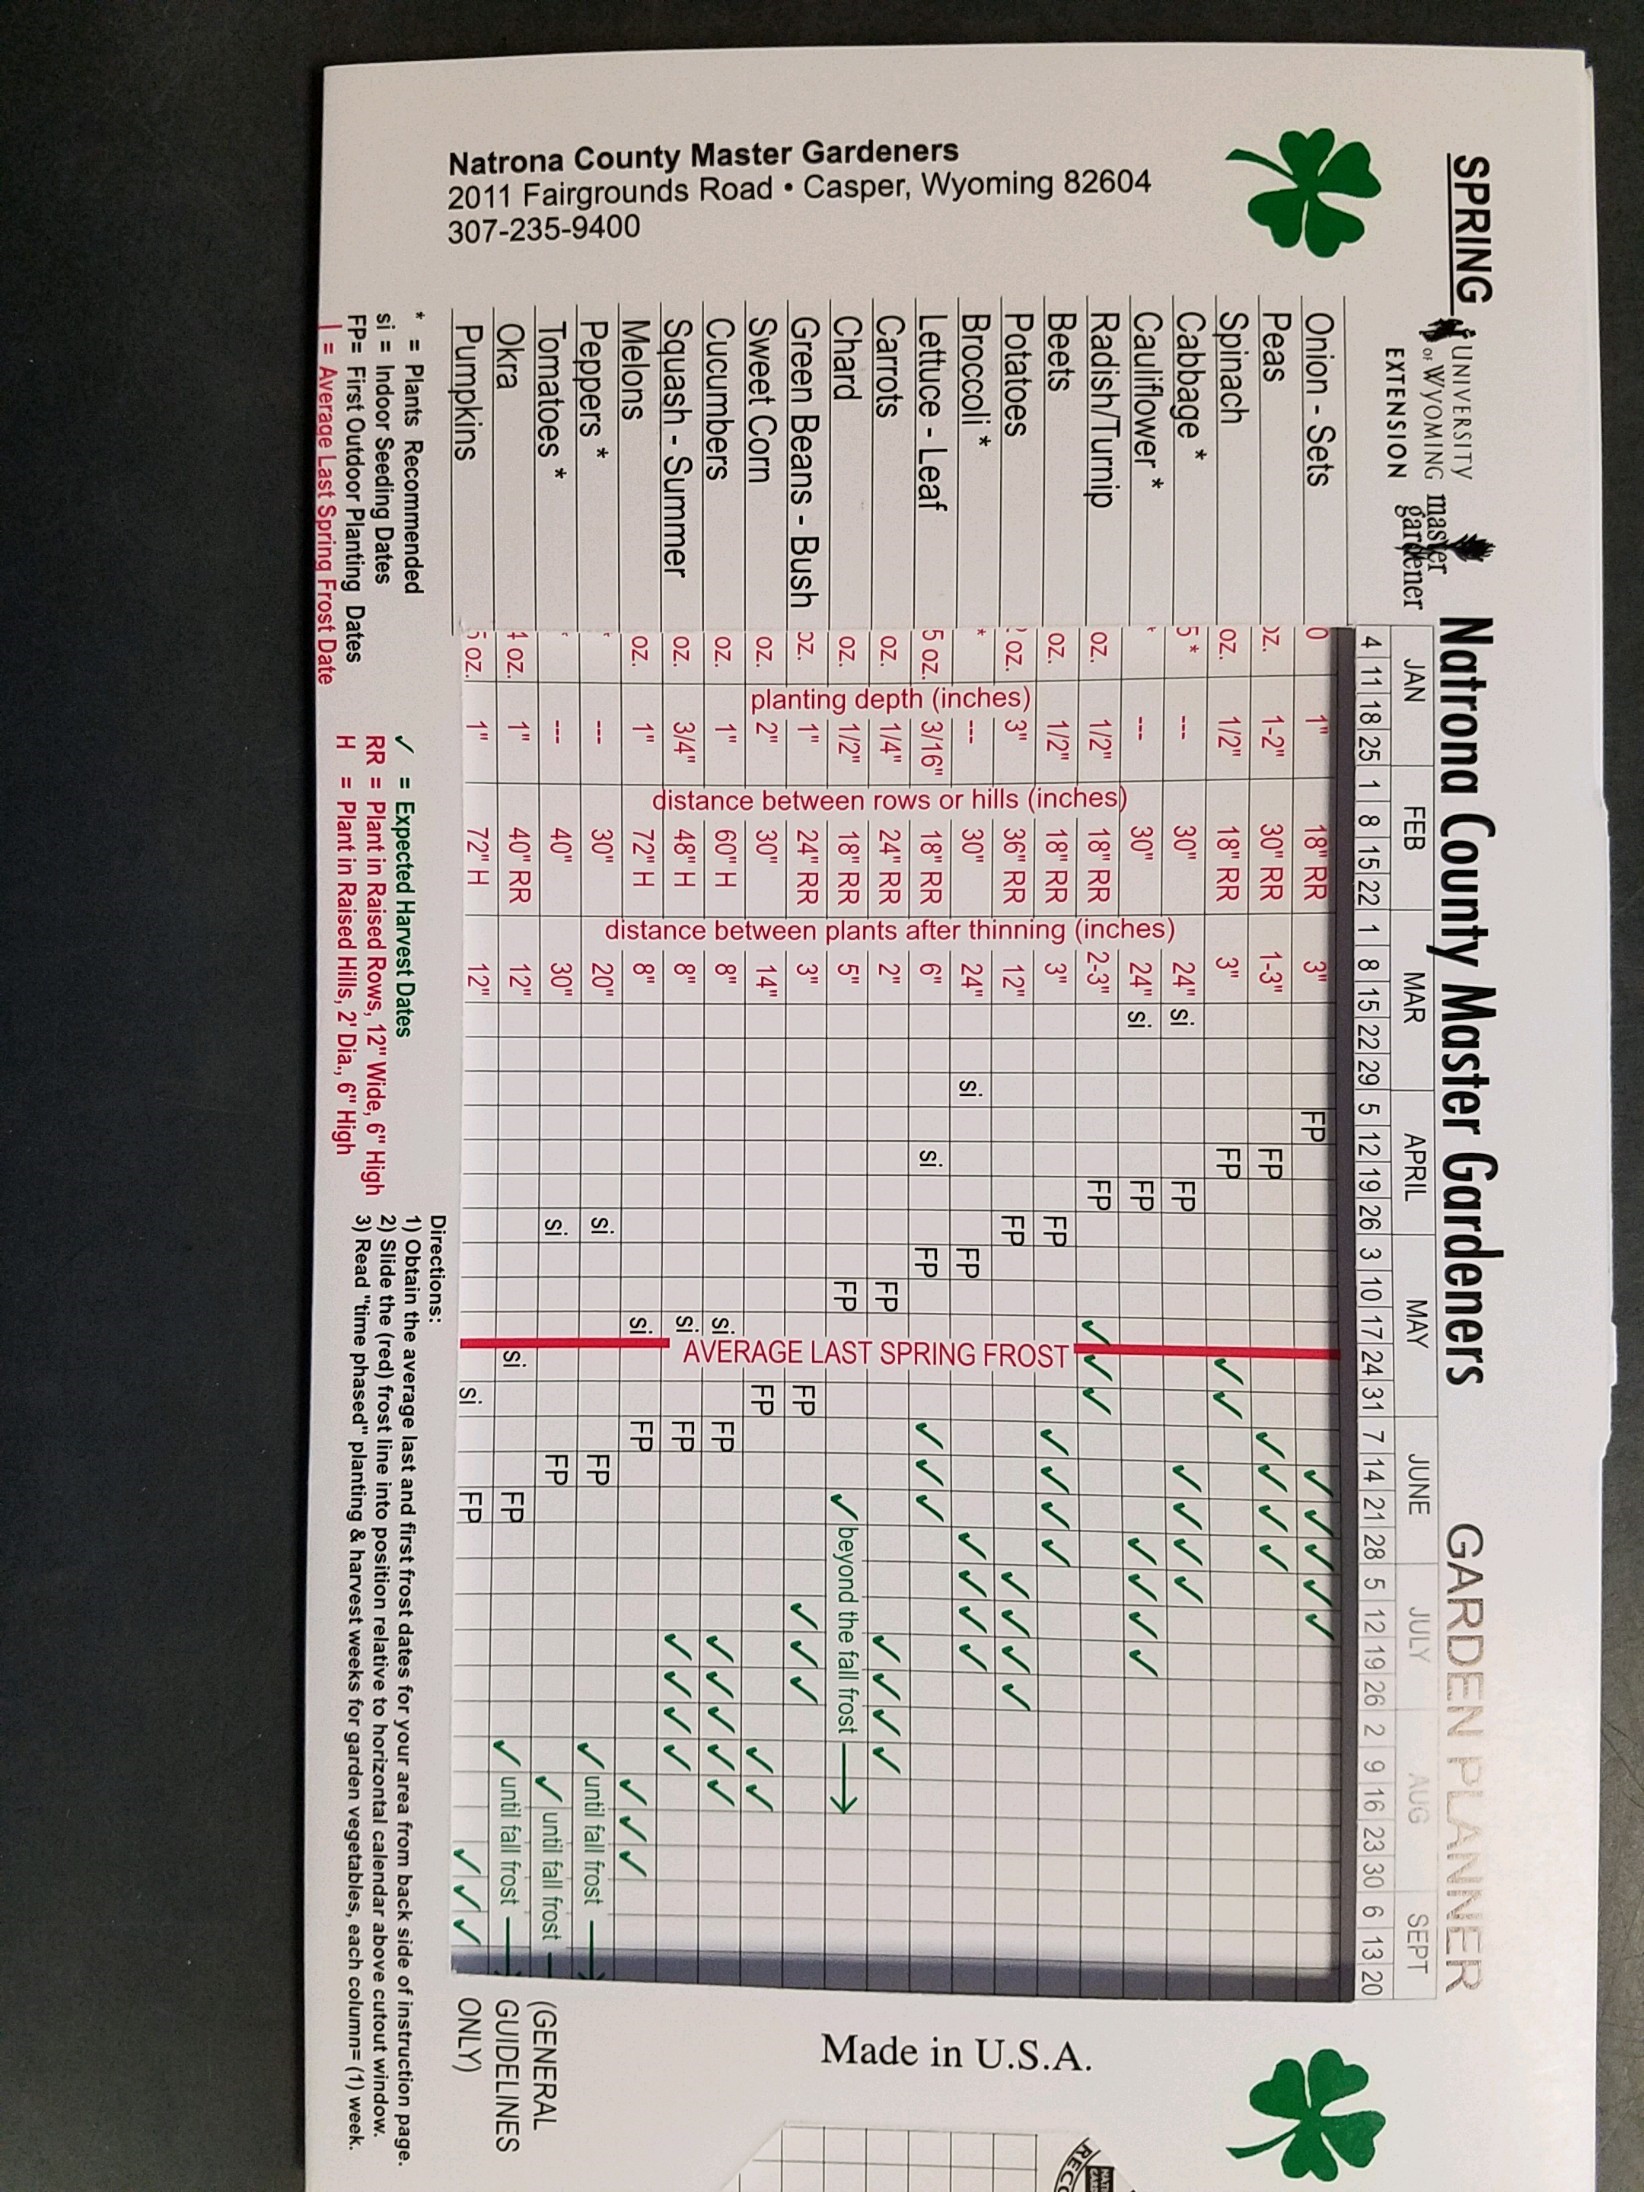 SPRING
UNIVERSITY
OF WYOMING
EXTENSION
master
gardener
Natrona County Master Gardeners
GARDEN PLANNER
JAN FEB MAR APRIL MAY JUNE JULY AUG SEPT
4 11 18 25 1 8 15 22 1 8 15 22 29 5 12 19 26 3 10 17 24 31 7 14 21 28 5 12 19 26 2 9 16 23 30 6 13 20
Onion - Sets 0 1" 18" RR 3" FP ✓ ✓ ✓ ✓ ✓
Peas oz. 1-2" 30" RR 1-3" FP ✓ ✓ ✓ ✓
Spinach oz. 1/2" 18" RR 3" FP ✓ ✓
Cabbage * 5 * --- 30" 24" si FP ✓ ✓ ✓ ✓
Cauliflower * --- 30" 24" si FP ✓ ✓ ✓ ✓
Radish/Turnip oz. 1/2" 18" RR 2-3" FP ✓ ✓ ✓
Beets oz. 1/2" 18" RR 3" FP ✓ ✓ ✓ ✓
Potatoes oz. 3" 36" RR 12" FP ✓ ✓ ✓ ✓
Broccoli * * --- 30" 24" si FP ✓ ✓ ✓ ✓
Lettuce - Leaf 5 oz. 3/16" 18" RR 6" si FP ✓ ✓ ✓
Carrots oz. 1/4" 24" RR 2" FP ✓ ✓ ✓ ✓
Chard oz. 1/2" 18" RR 5" FP ✓ beyond the fall frost
Green Beans - Bush oz. 1" 24" RR 3" FP ✓ ✓ ✓
Sweet Corn oz. 2" 30" 14" FP ✓ ✓
Cucumbers oz. 1" 60" H 8" si FP ✓ ✓ ✓ ✓ ✓
Squash - Summer oz. 3/4" 48" H 8" si FP ✓ ✓ ✓ ✓
Melons oz. 1" 72" H 8" si FP ✓ ✓ ✓
Peppers * --- 30" 20" si FP ✓ until fall frost
Tomatoes * --- 40" 30" si FP ✓ until fall frost
Okra 4 oz. 1" 40" RR 12" si FP ✓ until fall frost
Pumpkins 5 oz. 1" 72" H 12" si FP ✓ ✓ ✓
planting depth (inches)
distance between rows or hills (inches)
distance between plants after thinning (inches)
AVERAGE LAST SPRING FROST
* = Plants Recommended
si = Indoor Seeding Dates
FP= First Outdoor Planting Dates
| = Average Last Spring Frost Date
✓ = Expected Harvest Dates
RR = Plant in Raised Rows, 12" Wide, 6" High
H = Plant in Raised Hills, 2' Dia., 6" High
Directions:
1) Obtain the average last and first frost dates for your area from back side of instruction page.
2) Slide the (red) frost line into position relative to horizontal calendar above cutout window.
3) Read "time phased" planting & harvest weeks for garden vegetables, each column= (1) week.
(GENERAL
GUIDELINES
ONLY)
Natrona County Master Gardeners
2011 Fairgrounds Road • Casper, Wyoming 82604
307-235-9400
Made in U.S.A.